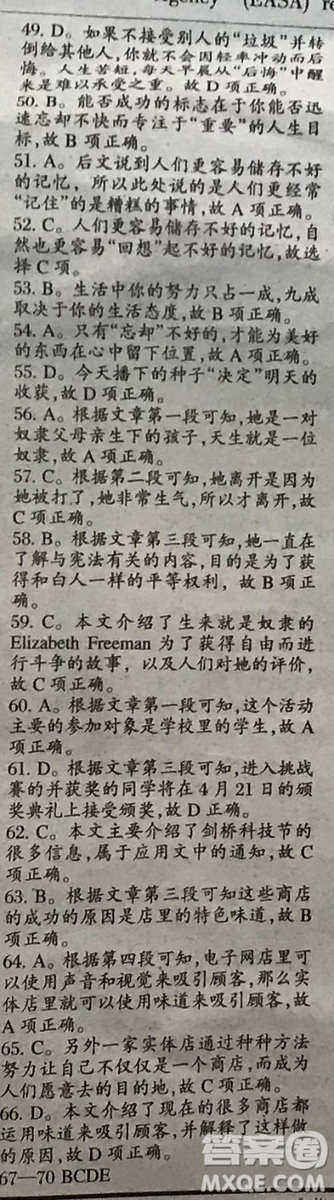 (EASA) re
49. D。如果不接受别人的“垃圾”并转
倒给其他人,你就不会因轻率冲动而后
悔。人生苦短,每天早晨从“后悔”中醒
来是难以承受之重。故 D 项正确。
50. B。能否成功的标志在于你能否迅
速忘却不快而专注于“重要”的人生目
标,故 B 项正确。
51. A。后文说到人们更容易储存不好
的记忆,所以此处说的是人们更经常
“记住”的是糟糕的事情,故 A 项正确。
52. C。人们更容易储存不好的记忆,自
然也更容易“回想”起不好的记忆,故选
择 C 项。
53. B。生活中你的努力只占一成,九成
取决于你的生活态度,故 B 项正确。
54. A。只有“忘却”不好的,才能为美好
的东西在心中留下位置,故 A 项正确。
55. D。今天播下的种子“决定”明天的
收获,故 D 项正确。
56. A。根据文章第一段可知,她是一对
奴隶父母亲生下的孩子,天生就是一位
奴隶,故 A 项正确。
57. C。根据第二段可知,她离开是因为
她被打了,她非常生气,所以才离开,故
C 项正确。
58. B。根据文章第三段可知,她一直在
了解与宪法有关的内容,目的是为了获
得和白人一样的平等权利,故 B 项正
确。
59. C。本文介绍了生来就是奴隶的
Elizabeth Freeman 为了获得自由而进
行斗争的故事,以及人们对她的评价,
故 C 项正确。
60. A。根据文章第一段可知,这个活动
主要的参加对象是学校里的学生,故 A
项正确。
61. D。根据文章第三段可知,进入挑战
赛的并获奖的同学将在 4 月 21 日的颁
奖典礼上接受颁奖,故 D 正确。
62. C。本文主要介绍了剑桥科技节的
很多信息,属于应用文中的通知,故 C
项正确。
63. B。根据文章第三段可知这些商店
的成功的原因是店里的特色味道,故 B
项正确。
64. A。根据第四段可知,电子网店里可
以使用声音和视觉来吸引顾客,那么实
体店里就可以使用味道来吸引顾客,故
A 项正确。
65. C。另外一家实体店通过种种方法
努力让自己不仅仅是一个商店,而成为
人们愿意去的目的地,故 C 项正确。
66. D。本文介绍了现在的很多商店都
运用味道来吸引顾客,并解释了这样做
的原因,故 D 项正确。
67—70 BCDE
答案圈
MXQE.COM